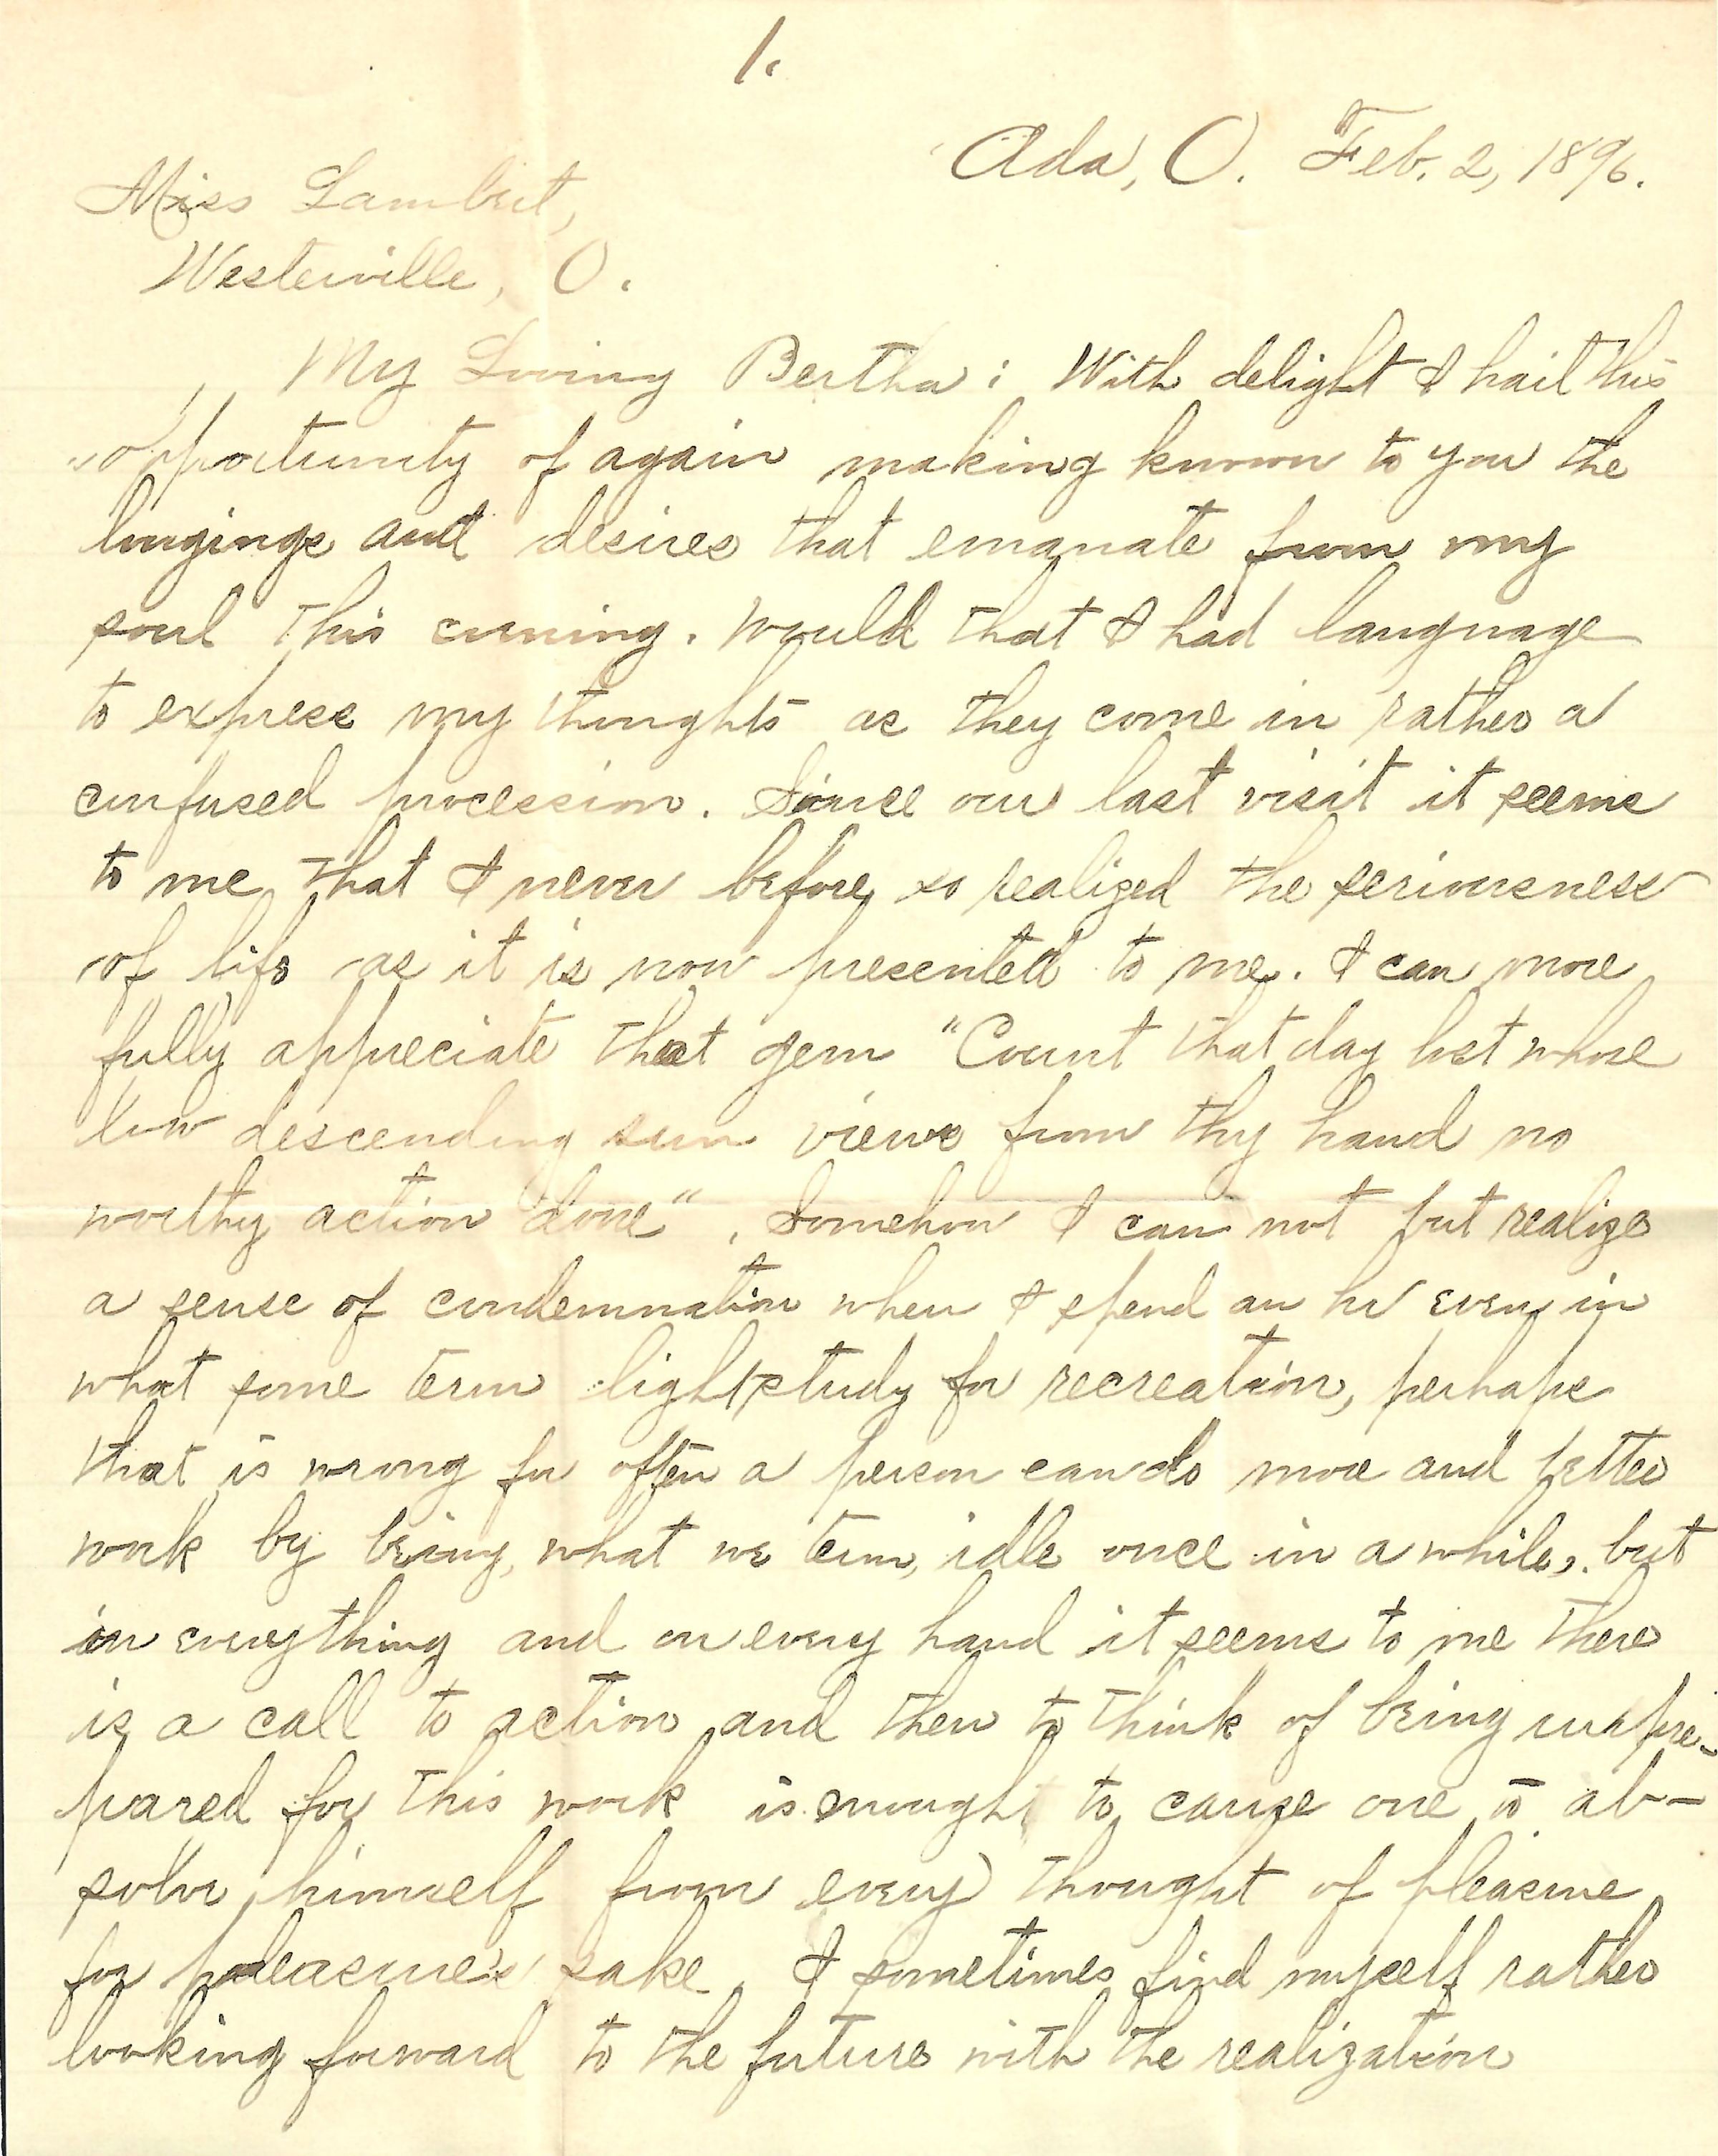 1.
Ada, O. Feb. 2, 1896.
Miss Lambert,
Westerville, O.
My Loving Bertha: With delight I hail this
opportunity of again making known to you the
longings and desires that emanate from my
soul this evening. Would that I had language
to express my thoughts as they come in rather a
confused procession. Since our last visit it seems
to me that I never before so realized the seriousness
of life as it is now presented to me. I can more
fully appreciate that gem "Count that day lost whose
low descending sun views from thy hand no
worthy action done". Somehow I can not but realize
a sense of condemnation when I spend an hr even in
what some term light study for recreation, perhaps
that is wrong for often a person can do more and better
work by being, what we term, idle once in a while, but
in everything and on every hand it seems to me there
is a call to action and then to think of being unpre-
pared for this work is enough to cause one to ab-
solve himself from every thought of pleasure
for pleasure's sake. I sometimes find myself rather
looking forward to the future with the realization